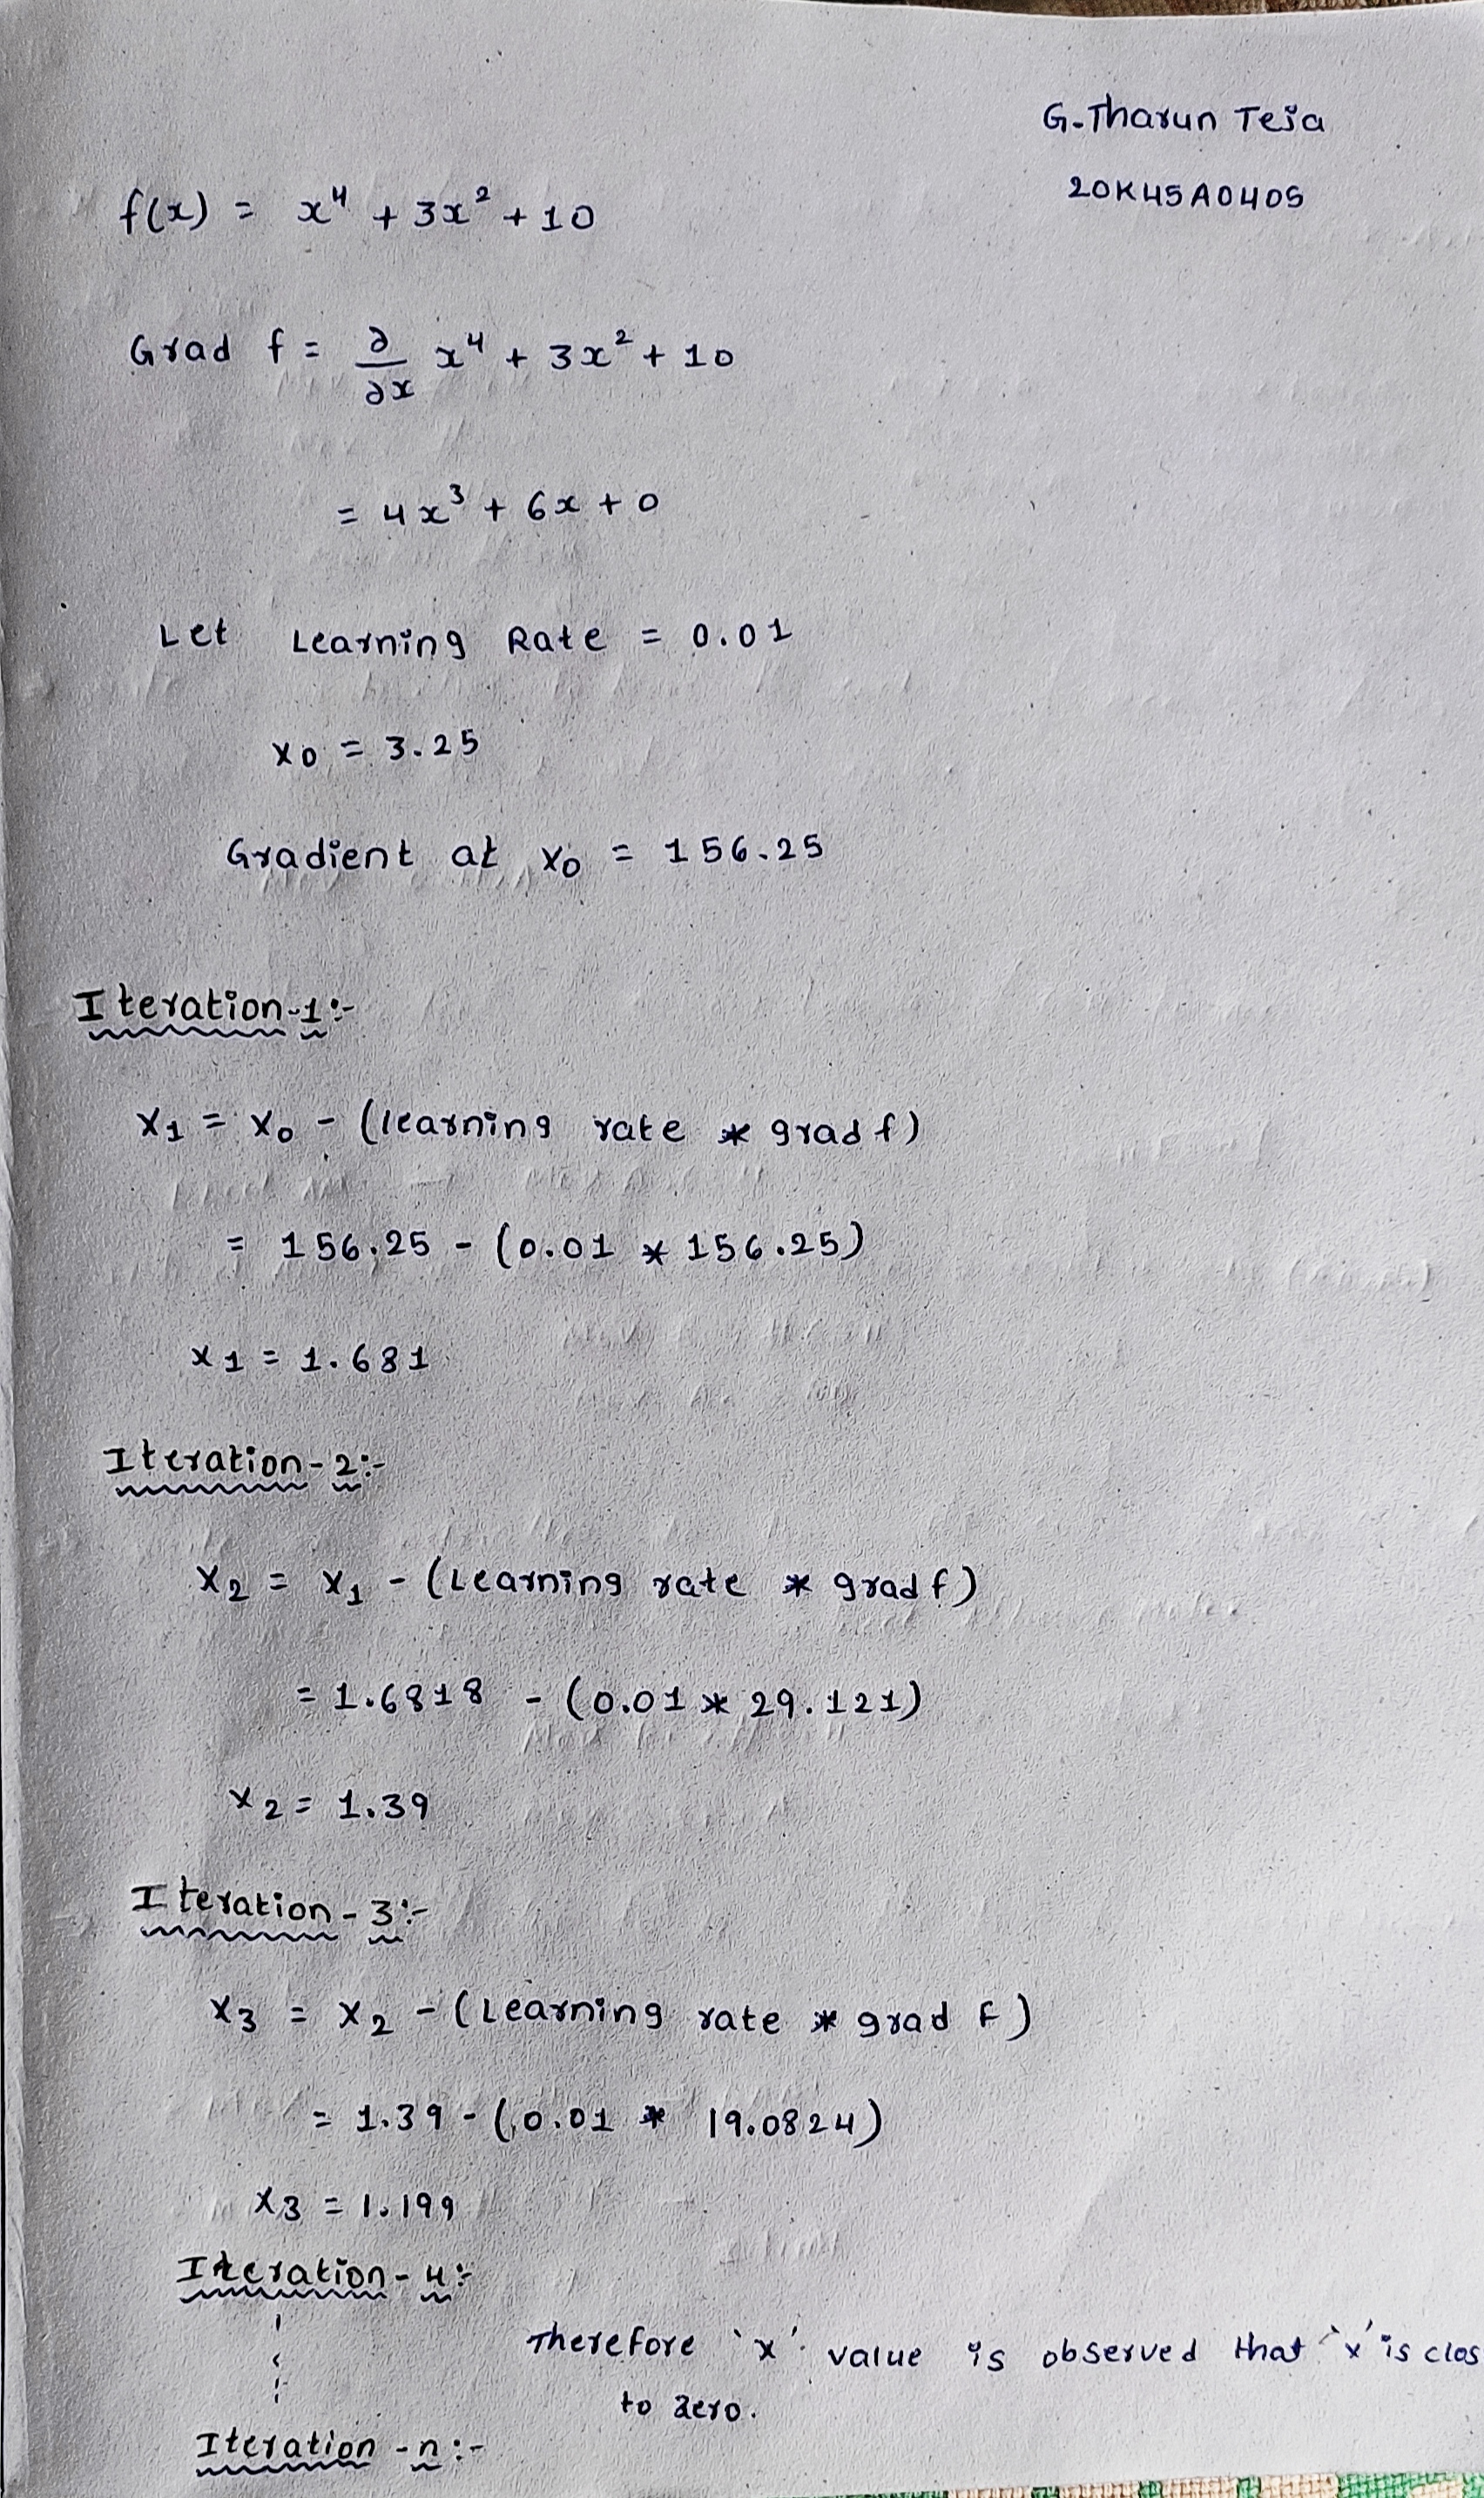 G.Tharun Teja
20K45A0405
f(x) = x⁴ + 3x² + 10
Grad f = ∂/∂x x⁴ + 3x² + 10
= 4x³ + 6x + 0
Let Learning Rate = 0.01
x0 = 3.25
Gradient at x₀ = 156.25
Iteration-1:-
X₁ = X₀ - (learning rate * grad f)
= 156.25 - (0.01 * 156.25)
x₁ = 1.681
Iteration-2:-
X₂ = X₁ - (Learning rate * grad f)
= 1.6818 - (0.01 * 29.121)
x₂ = 1.39
Iteration-3:-
X₃ = X₂ - (Learning rate * grad f)
= 1.39 - (0.01 * 19.0824)
X₃ = 1.199
Iteration-4:-
Therefore `x' value is observed that `x' is clos
to zero.
Iteration-n:-